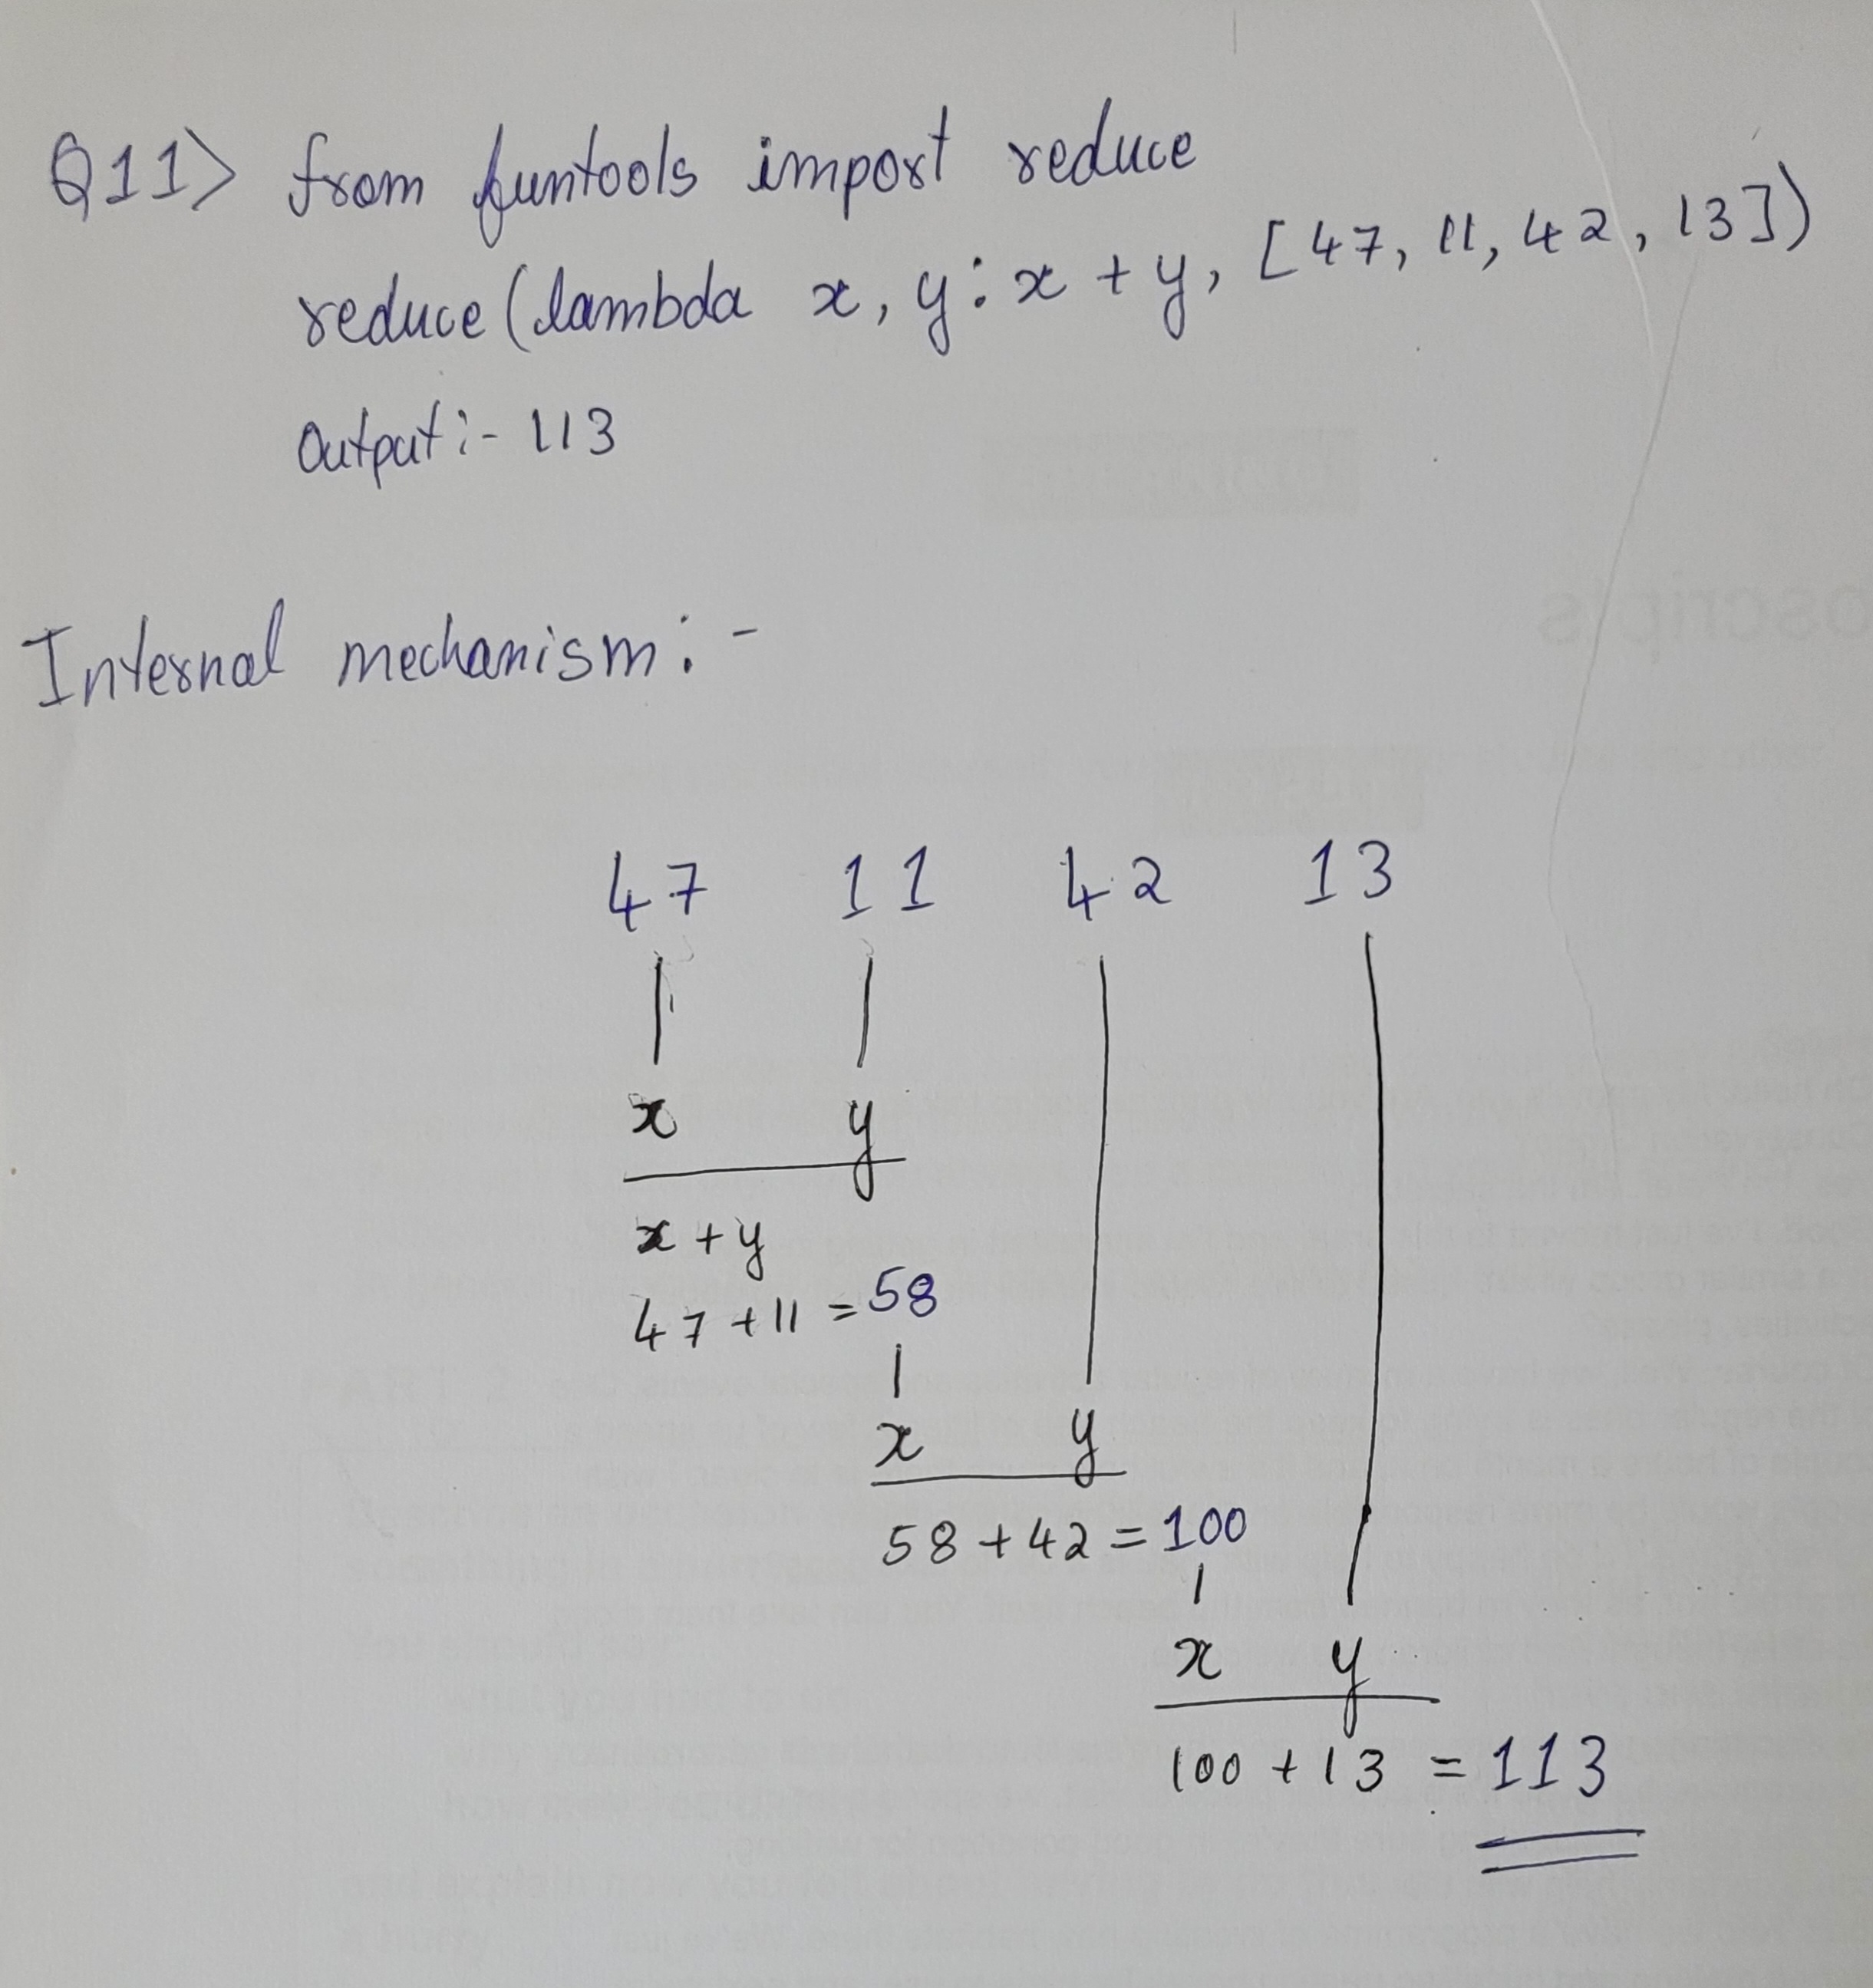 Q11> from funtools import reduce
reduce(lambda x, y: x + y, [47, 11, 42, 13])
Output:- 113
Internal mechanism:-
47 11 42 13
x y
x + y
47 + 11 = 58
x y
58 + 42 = 100
x y
100 + 13 = 113